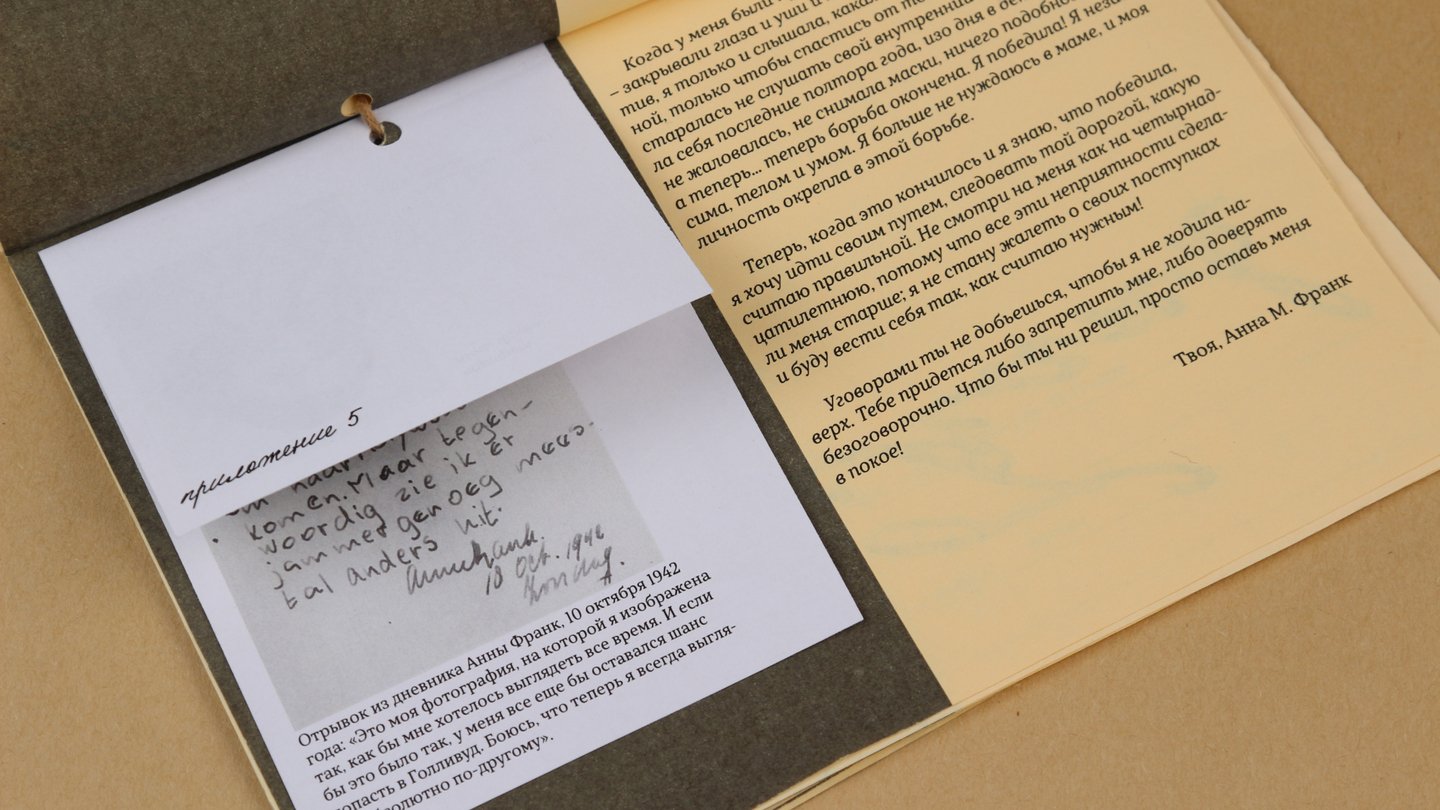 приложение 5
komen. Maar tegen-
woordig zie ik er
jammer genoeg mees-
tal anders uit.
Annefrank.
18 Oct. 1942
Zondag.
Отрывок из дневника Анны Франк, 10 октября 1942
года: «Это моя фотография, на которой я изображена
так, как бы мне хотелось выглядеть все время. И если
бы это было так, у меня все еще бы оставался шанс
попасть в Голливуд. Боюсь, что теперь я всегда выгля-
по-другому».
Когда у меня были
– закрывали глаза и уши и
тив, я только и слышала,
ной, только чтобы спастись от
старалась не слушать свой внутренний
ла себя последние полтора года, изо дня в
не жаловалась, не снимала маски, ничего
а теперь... теперь борьба окончена. Я победила! Я неза-
сима, телом и умом. Я больше не нуждаюсь в маме, и моя
личность окрепла в этой борьбе.
Теперь, когда это кончилось и я знаю, что победила,
я хочу идти своим путем, следовать той дорогой, какую
считаю правильной. Не смотри на меня как на четырнад-
цатилетнюю, потому что все эти неприятности сдела-
ли меня старше; я не стану жалеть о своих поступках
и буду вести себя так, как считаю нужным!
Уговорами ты не добьешься, чтобы я не ходила на-
верх. Тебе придется либо запретить мне, либо доверять
безоговорочно. Что бы ты ни решил, просто оставь меня
в покое!
Твоя, Анна М. Франк